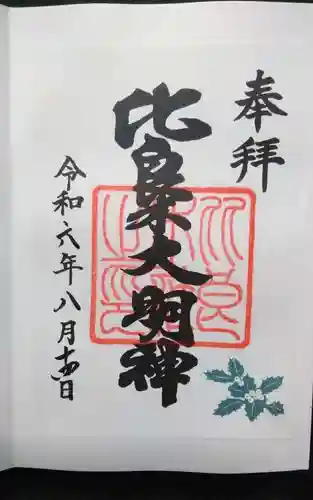 奉拝
比良木大明神
令和六年八月十四日